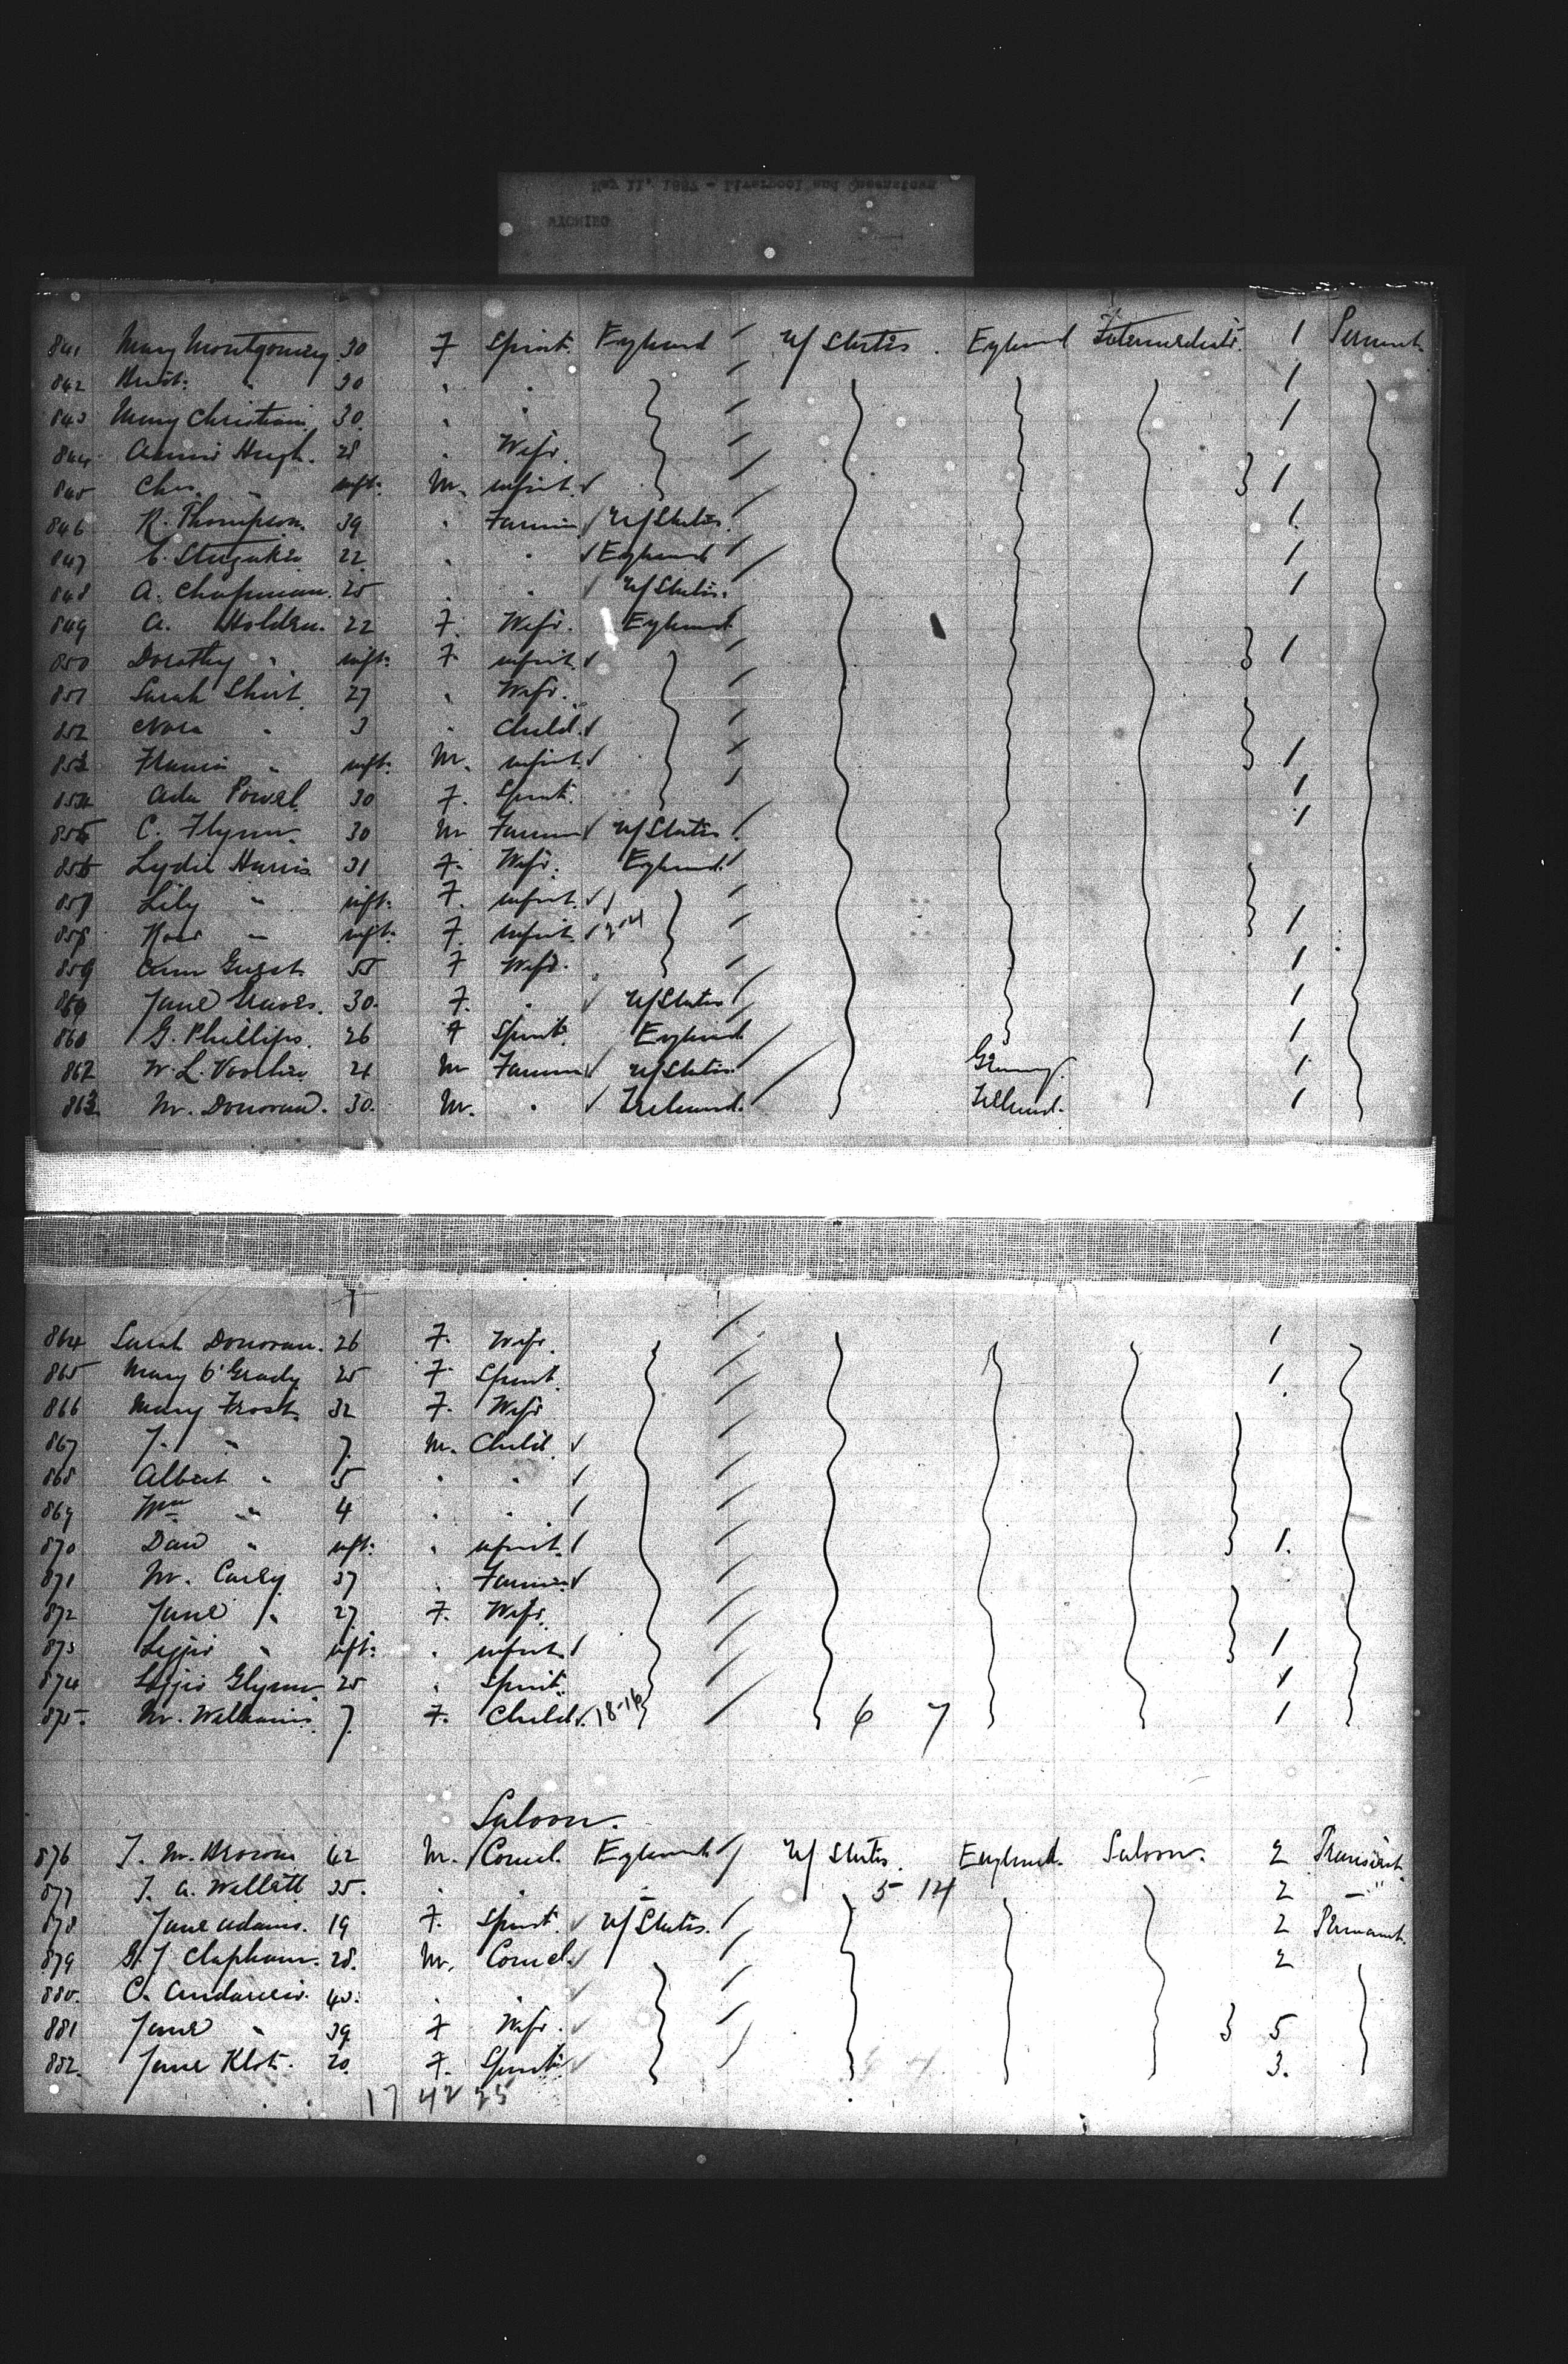 May 11, 1887 - Liverpool and Queenstown
WYOMING
841 Mary Montgomery 30 F Spinst. England U/States. England Intermediate. 1 Permnt.
842 " 30 " " 1
843 Mary Christian 30. " " 1
844 Annie Hugh. 28 " Wife.
845 Chas. " inft. M. infant. 1
846 R. Thompson. 39 " Farmer U/States. 1
847 22 " " England 1
848 A. Chapman. 25 " " U/States. 1
849 A. Holden. 22 F. Wife. England
850 Dorothy " inft. F. infant. 1
851 Sarah Short. 27 " Wife.
852 Nora " 3 " Child.
853 " inft. M. infant. 1
854 Ada Powel. 30 F. Spinst. 1
855 C. Flynn. 30 M Farmer U/States. 1
856 Lydia Harris 31 F. Wife. England
857 Lily " inft. F. infant.
858 " inft. F. infant. 1
859 Ann Guest 55 F Wife. 1
860 Jane Graves. 30. F. " U/States 1
860 G. Phillips. 26 F Spinst. England 1
862 W. L. 24 M Farmer U/States. Germy. 1
863 M. Donovan. 30. M. " Ireland. Ireland. 1
864 Sarah Donovan. 26 F. Wife. 1
865 Mary O'Grady 25 F Spinst. 1
866 Mary Frost. 32 F. Wife
867 J. " 7 M. Child
868 Albert " 5 " "
869 Wm " 4 " "
870 " inft. " infant. 1.
871 M. Carey 37 " Farmer
872 Jane " 27 F. Wife.
873 Lizzie " inft. " infant. 1
874 Lizzie Glynn 25 " Spinst. 1
875. M. Williams. 7 F. Child. 18-16 6 7 1
Saloon.
876 T. M. Brown 42 M. Comcl. England U/States. England. Saloon. 2 Transient.
877 J. A. Willett 35. " " 5 14 2 "
878 Jane Adams. 19 F. Spinst. U/States. 2 Permannt.
879 G. J. Clapham. 28. M. Comcl. 2
880. C. 40. " "
881 Jane " 39 F Wife. 5
882. Jane 20. F. Spinst. 6 4 3.
17 42 25